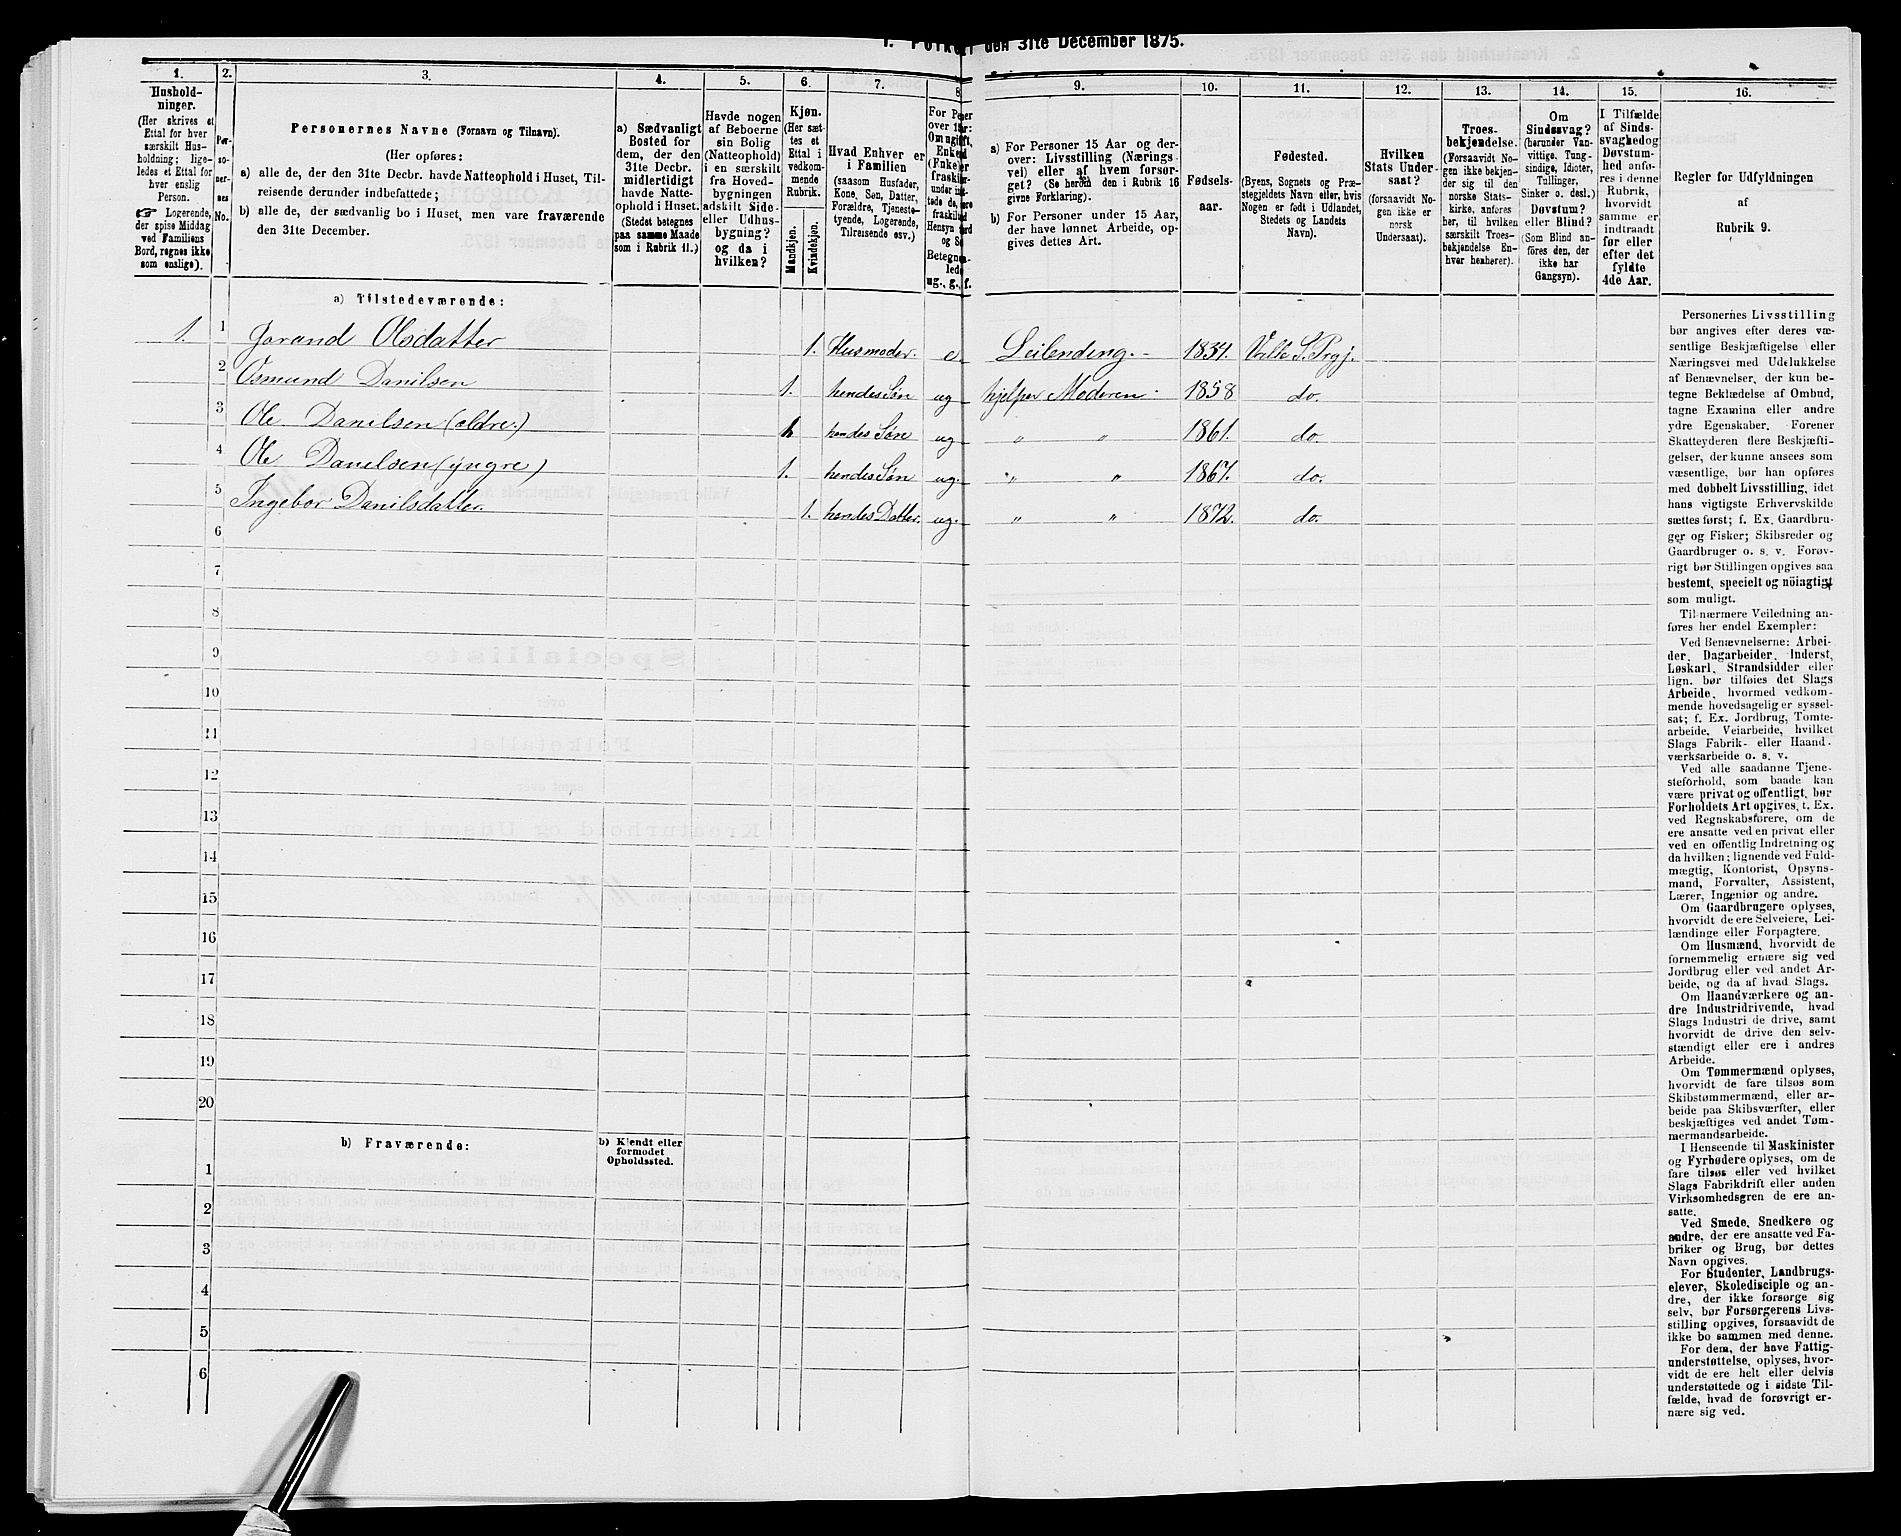 den 31te December 1875.
1.
2.
3.
4.
5.
6.
7.
8
9.
10.
11.
12.
13.
14.
15.
16.
Hushold-
ninger.
(Her skrives et
Ettal for hver
særskilt Hus-
holdning; lige-
ledes et Ettal for
hver enslig
Person.
☞ Logerende,
der spise Middag
ved Familiens
Bord, regnes ikke
som enslige).
Per-
so-
ner-
nes
No.
Personernes Navne (Fornavn og Tilnavn).
(Her opføres:
a) alle de, der den 31te Decbr. havde Natteophold i Huset, Til-
reisende derunder indbefattede;
b) alle de, der sædvanlig bo i Huset, men vare fraværende
den 31te December.
a) Sædvanligt
Bosted for
dem, der den
31te Decbr.
midlertidigt
havde Natte-
ophold i Huset.
(Stedet betegnes
paa samme Maade
som i Rubrik 11.)
Havde nogen
af Beboerne
sin Bolig
(Natteophold)
i en særskilt
fra Hoved-
bygningen
adskilt Side-
eller Udhus-
bygning?
og da i
hvilken?
Kjøn.
(Her sæt-
tes et
Ettal i
vedkom-
mende
Rubrik.
Mandkjøn.
Kvindekjøn.
Hvad Enhver er
i Familien
(saasom Husfader,
Kone, Søn, Datter,
Forældre, Tjeneste-
tyende, Logerende,
Tilreisende osv.)
a) For Personer 15 Aar og der-
over: Livsstilling (Nærings-
vei) eller af hvem forsør-
get? (Se herom den i Rubrik 16
givne Forklaring).
b) For Personer under 15 Aar,
der have lønnet Arbeide, op-
gives dettes Art.
Fødsels-
aar.
Fødested.
(Byens, Sognets og Præ-
stegjeldets Navn eller, hvis
Nogen er født i Udlandet,
Stedets og Landets
Navn).
Hvilken
Stats Under-
saat?
(Forsaavidt No-
gen ikke er
norsk
Undersaat).
Troes-
bekjendelse.
(Forsaavidt No-
gen ikke bekjen-
der sig til den
norske Stats-
kirke, anføres
her, til hvilken
særskilt Troes-
bekjendelse En-
hver henhører).
Om
Sindssvag?
(herunder Van-
vittige, Tung-
sindige, Idioter,
Tullinger,
Sinker o. desl.)
Døvstum?
eller Blind?
(Som Blind an-
føres den, der
ikke har
Gangsyn).
I Tilfælde
af Sinds-
svaghed og
Døvstum-
hed anfø-
res i denne
Rubrik,
hvorvidt
samme er
indtraadt
før eller
efter det
fyldte
4de Aar.
Regler for Udfyldningen
af
Rubrik 9.
a) Tilstedeværende:
1. 1 Jorand Olsdatter 1. Husmoder. e. Leilending. 1834. Valle S. Prgj.
2 Osmund Danilsen 1. hendes Søn ug hjelper Moderen 1858 do.
3 Ole Danilsen (ældre.) hendes Søn ug " " 1861. do.
4 Ole Danilsen (yngre) 1. hendes Søn ug. " " 1867. do.
5 Ingebor Danilsdatter. 1. hendes Datter. ug. " " 1872. do.
6
7
8
9
10
11
12
13
14
15
16
17
18
19
20
b) Fraværende:
b) Kjendt eller
formodet
Opholdssted.
1
2
3
4
5
6
Personernes Livsstilling
bør angives efter deres væ-
sentlige Beskjæftigelse eller
Næringsvei med Udelukkelse
af Benævnelser, der kun be-
tegne Beklædelse af Ombud,
tagne Examina eller andre
ydre Egenskaber. Forener
Skatteyderen flere Beskjæfti-
gelser, der kunne ansees som
væsentlige, bør han opføres
med dobbelt Livsstilling, idet
hans vigtigste Erhvervskilde
sættes først; f. Ex. Gaardbru-
ger og Fisker; Skibsreder og
Gaardbruger o. s. v. Forøv-
rigt bør Stillingen opgives saa
bestemt, specielt og nöiagtigt
som muligt.
Til nærmere Veiledning an-
føres her endel Exempler:
Ved Benævnelserne: Arbei-
der, Dagarbeider, Inderst,
Løskarl, Strandsidder eller
lign. bør tilføies det Slags
Arbeide, hvormed vedkom-
mende hovedsagelig er syssel-
sat; f. Ex. Jordbrug, Tomte-
arbeide, Veiarbeide, hvilket
Slags Fabrik- eller Haand-
værksarbeide o. s. v.
Ved alle saadanne Tjene-
steforhold, som baade kan
være privat og offentligt, bør
Forholdets Art opgives, t. Ex.
ved Regnskabsførere, om de
ere ansatte ved en privat eller
ved en offentlig Indretning og
da hvilken; lignende ved Fuld-
mægtig, Kontorist, Opsyns-
mand, Forvalter, Assistent,
Lærer, Ingeniør og andre.
Om Gaardbrugere oplyses,
hvorvidt de ere Selveiere, Lei-
lændinge eller Forpagtere.
Om Husmænd, hvorvidt de
fornemmelig ernære sig ved
Jordbrug eller ved andet Ar-
beide, og da af hvad Slags.
Om Haandværkere og an-
dre Industridrivende, hvad
Slags Industri de drive, samt
hvorvidt de drive den selv-
stændigt eller ere i andres
Arbeide.
Om Tømmermænd oplyses,
hvorvidt de fare tilsøs som
Skibstømmermænd, eller ar-
beide paa Skibsværfter, eller
beskjæftiges ved andet Tøm-
mermandsarbeide.
I Henseende til Maskinister
og Fyrbødere oplyses, om de
fare tilsøs eller ved hvilket
Slags Fabrikdrift eller anden
Virksomhedsgren de ere an-
satte.
Ved Smede, Snedkere og
andre, der ere ansatte ved Fa-
briker og Brug, bør dettes
Navn opgives.
For Studenter, Landbrugs-
elever, Skoledisciple og an-
dre, der ikke forsørge sig
selv, bør Forsørgerens Livs-
stilling opgives, forsaavidt de
ikke bo sammen med denne.
For dem, der have Fattig-
understøttelse, oplyses, hvor-
vidt de ere helt eller delvis
understøttede og i sidste Til-
fælde, hvad de forøvrigt er-
nære sig ved.